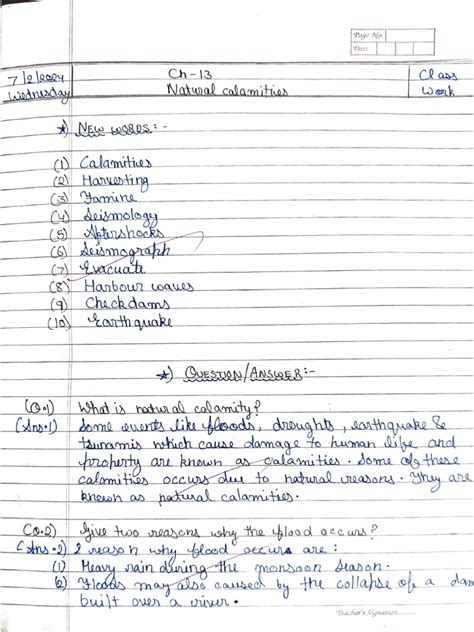 Page No.
Date
7/2/2024 Ch-13 Class
Wednesday Natural calamities Work
*) NEW WORDS:-
(1) Calamities
(2) Harvesting
(3) Famine
(4) Seismology
(5) Aftershocks
(6) Seismograph
(7) Evacuate
(8) Harbour waves
(9) Checkdams
(10) Earthquake
*) QUESTION/ANSWER:-
(Q.1) What is natural calamity?
(Ans.1) Some events like floods, droughts, earthquake &
tsunamis which cause damage to human life and
property are known as calamities. Some of these
calamities occurs due to natural reasons. They are
known as natural calamities.
(Q.2) Give two reasons why the flood occurs?
(Ans.2) 2 reason why flood occurs are:
(1) Heavy rain during the monsoon season.
(2) Floods may also caused by the collapse of a dam
built over a river.
Teacher's Signature